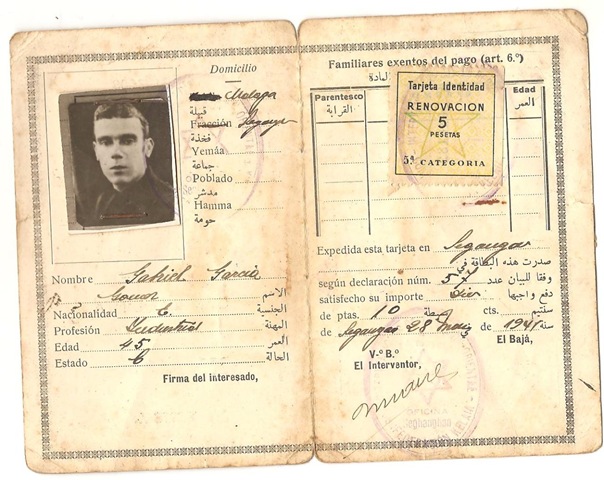 Domicilio
Malaga
قبيلة
Fracción Segangan
فخذة
Yemáa
جماعة
Poblado
مدشر
Hamma
حومة
Nombre Gabriel Garcia
الاسم
Nacionalidad E.
الجنسية
Profesión Industrial
المهنة
Edad 45
العمر
Estado C
الحالة
Firma del interesado,
Familiares exentos del pago (art. 6.º)
المادة
Parentesco
القرابة
Edad
العمر
Tarjeta Identidad
RENOVACION
5
PESETAS
5ª CATEGORIA
Expedida esta tarjeta en Segangan
صدرت هذه البطاقة في
según declaración núm. 57
وفقا للبيان عدد
satisfecho su importe Diez
دفع واجبها
de ptas. 10 بسيطة cts. سنتيم
de Segangan 28 Maio de 1941 سنة
V.º B.º
El Interventor,
El Bajá,
OFICINA
Seghanghan